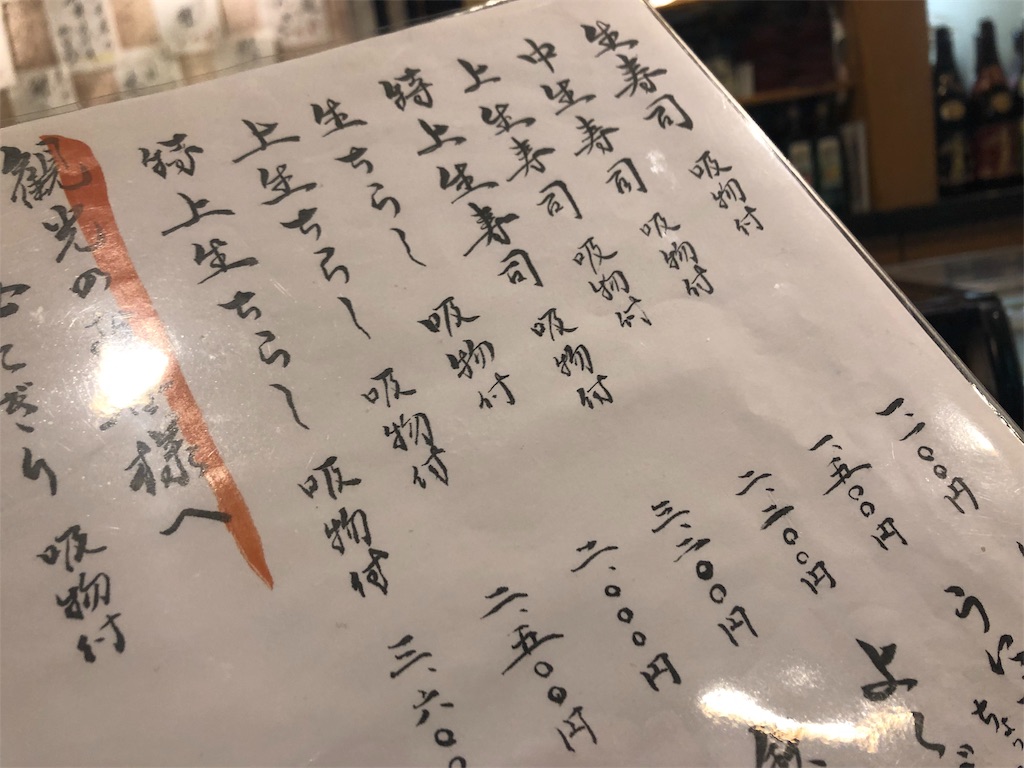 生寿司 吸物付 一、一〇〇円
中生寿司 吸物付 一、五〇〇円
上生寿司 吸物付 二、二〇〇円
特上生寿司 吸物付 三、二〇〇円
生ちらし 吸物付 二、〇〇〇円
上生ちらし 吸物付 二、五〇〇円
特上生ちらし 吸物付 三、六〇〇
観光の 様へ
おこてぎり 吸物付